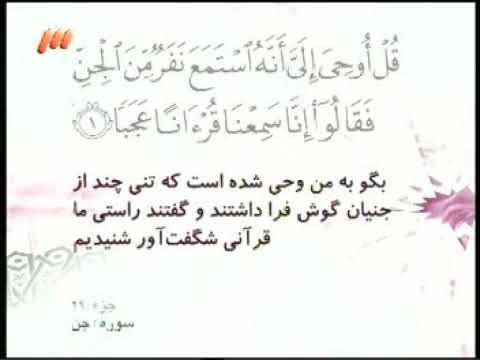 قُلْ أُوحِىَ إِلَىَّ أَنَّهُ ٱسْتَمَعَ نَفَرٌ مِّنَ ٱلْجِنِّ
فَقَالُوٓا۟ إِنَّا سَمِعْنَا قُرْءَانًا عَجَبًا ١
بگو به من وحی شده است که تنی چند از
جنیان گوش فرا داشتند و گفتند راستی ما
قرآنی شگفت‌آور شنیدیم
جزء: ۲۹
سوره: جن